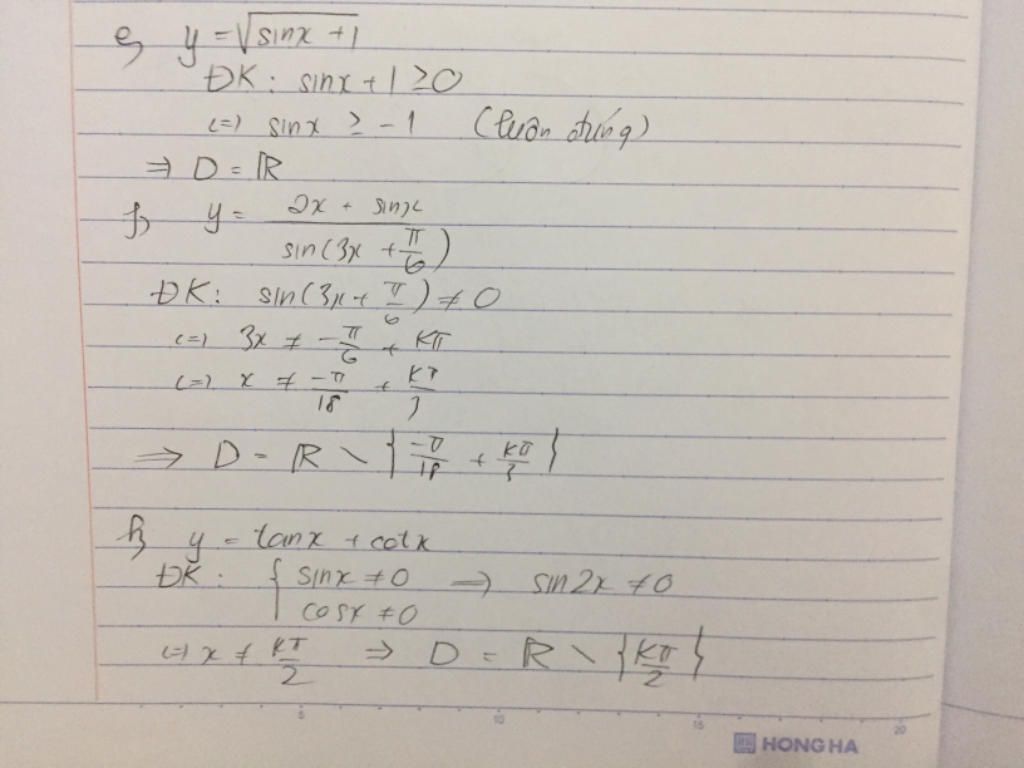 e, y = √(sinx + 1)
ĐK: sinx + 1 ≥ 0
<=> sinx ≥ -1 (luôn đúng)
=> D = ℝ
f, y = (2x + sinx) / sin(3x + π/6)
ĐK: sin(3x + π/6) ≠ 0
<=> 3x ≠ -π/6 + Kπ
<=> x ≠ -π/18 + Kπ/3
=> D = ℝ \ {-π/18 + Kπ/3}
h, y = tanx + cotx
ĐK: { sinx ≠ 0 => sin2x ≠ 0
cosx ≠ 0
<=> x ≠ Kπ/2 => D = ℝ \ {Kπ/2}
5 10 15 20
HONG HA